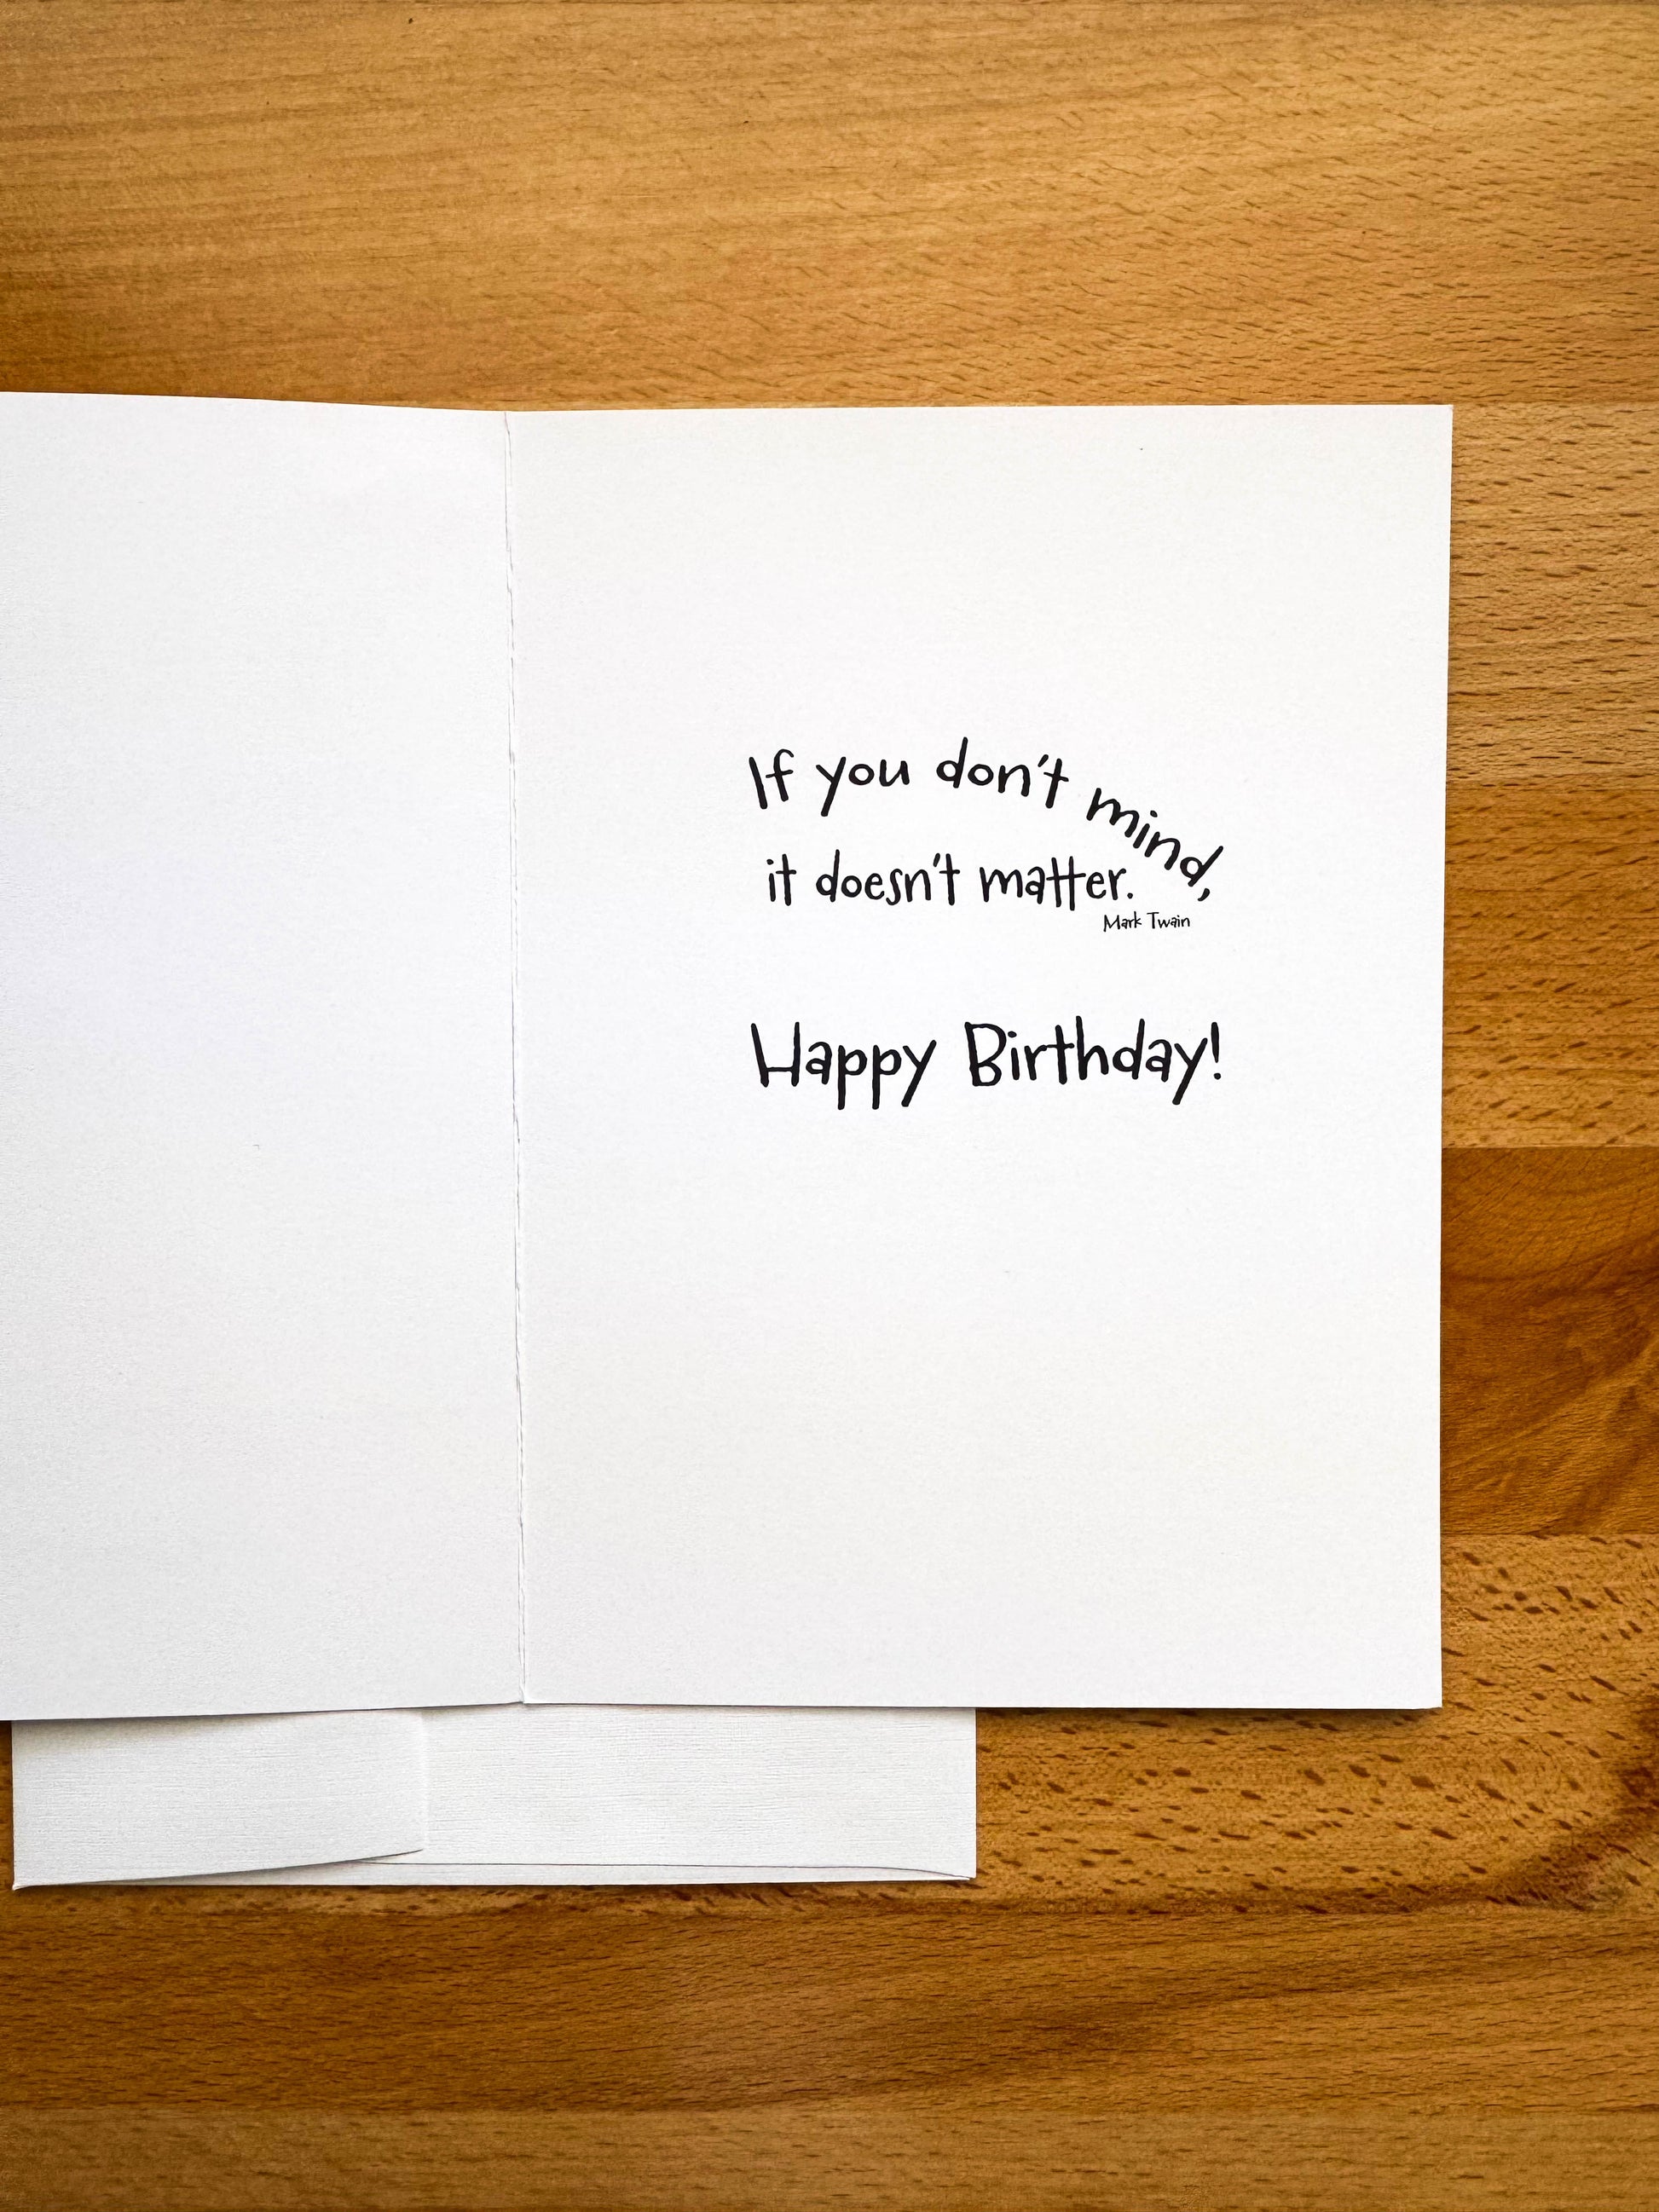 If you don't mind,
it doesn't matter.
Mark Twain
Happy Birthday!